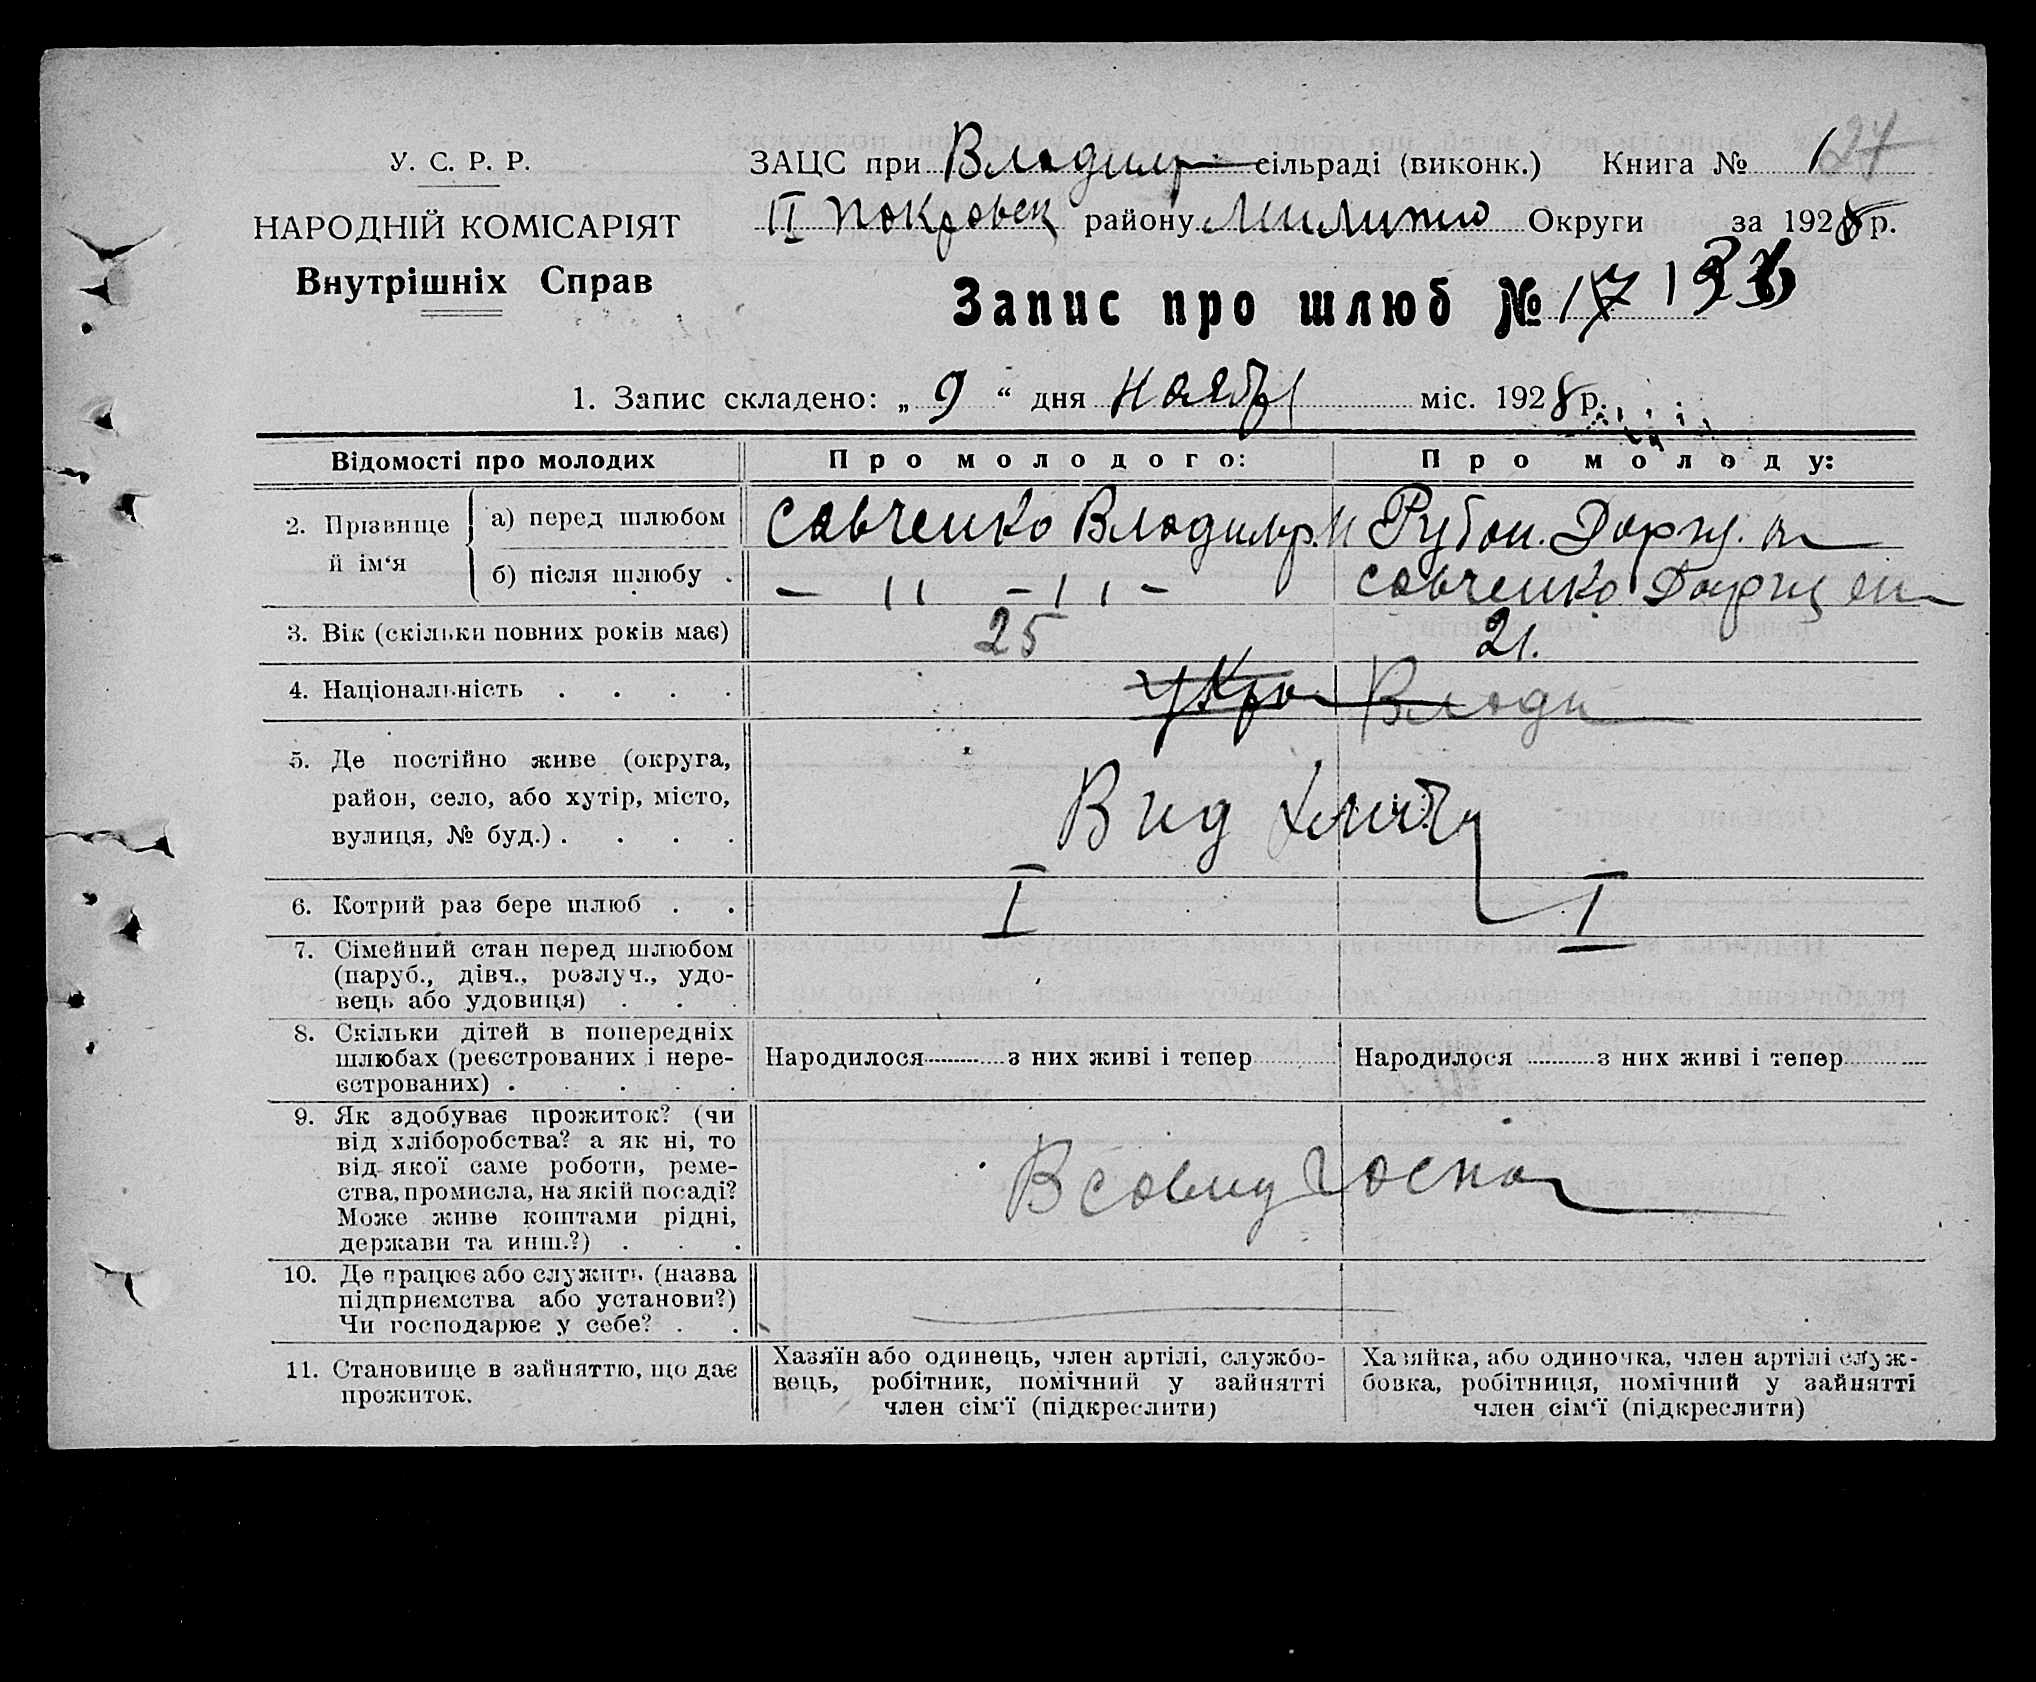 У. С. Р. Р.
НАРОДНІЙ КОМІСАРІЯТ
Внутрішніх Справ
ЗАЦС при Владимр сільраді (виконк.) Книга № 1 24
ІІ Покровск району Милито Округи за 1928 р.
Запис про шлюб № 17
1. Запис складено: „ 9 “ дня Ноябр міс. 1928 р.
Відомості про молодих
Про молодого:
Про молоду:
2. Прізвище й ім‘я
а) перед шлюбом
Савченко Владимр.
Рубан.
б) після шлюбу .
— ׀׀ — ׀׀ —
Савченко
3. Вік (скільки повних років має)
25
21.
4. Національність . . . .
Укра
Влади
5. Де постійно живе (округа,
район, село, або хутір, місто,
вулиця, № буд.) . . . .
6. Котрий раз бере шлюб . .
I
I
7. Сімейний стан перед шлюбом
(паруб., дівч., розлуч., удо-
вець або удовиця) . . .
8. Скільки дітей в попередніх
шлюбах (реєстрованих і нере-
єстрованих) . . . . .
Народилося з них живі і тепер
Народилося з них живі і тепер
9. Як здобуває прожиток? (чи
від хліборобства? а як ні, то
від якої саме роботи, реме-
ства, промисла, на якій посаді?
Може живе коштами рідні,
держави та инш.?) . . .
10. Де працює або служить (назва
підприємства або установи?)
Чи господарює у себе? . .
11. Становище в зайняттю, що дає
прожиток.
Хазяїн або одинець, член артілі, службо-
вець, робітник, помічний у зайнятті
член сім‘ї (підкреслити)
Хазяйка, або одиночка, член артілі служ-
бовка, робітниця, помічний у зайнятті
член сім‘ї (підкреслити)